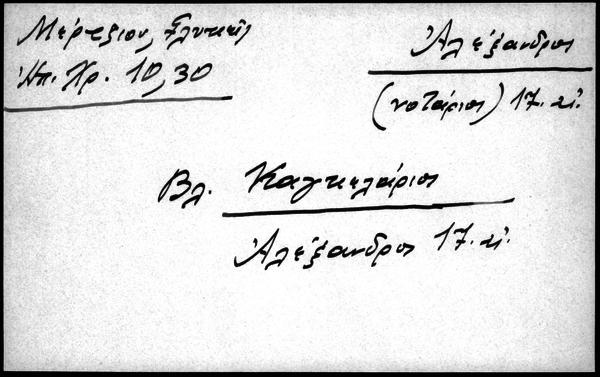 Μέρτζιον,
Ηπ. Χρ. 10,30
Ἀλέξανδρος
(νοτάριος) 17. αἰ.
Βλ. Καγκελάριος
Ἀλέξανδρος 17. αἰ.